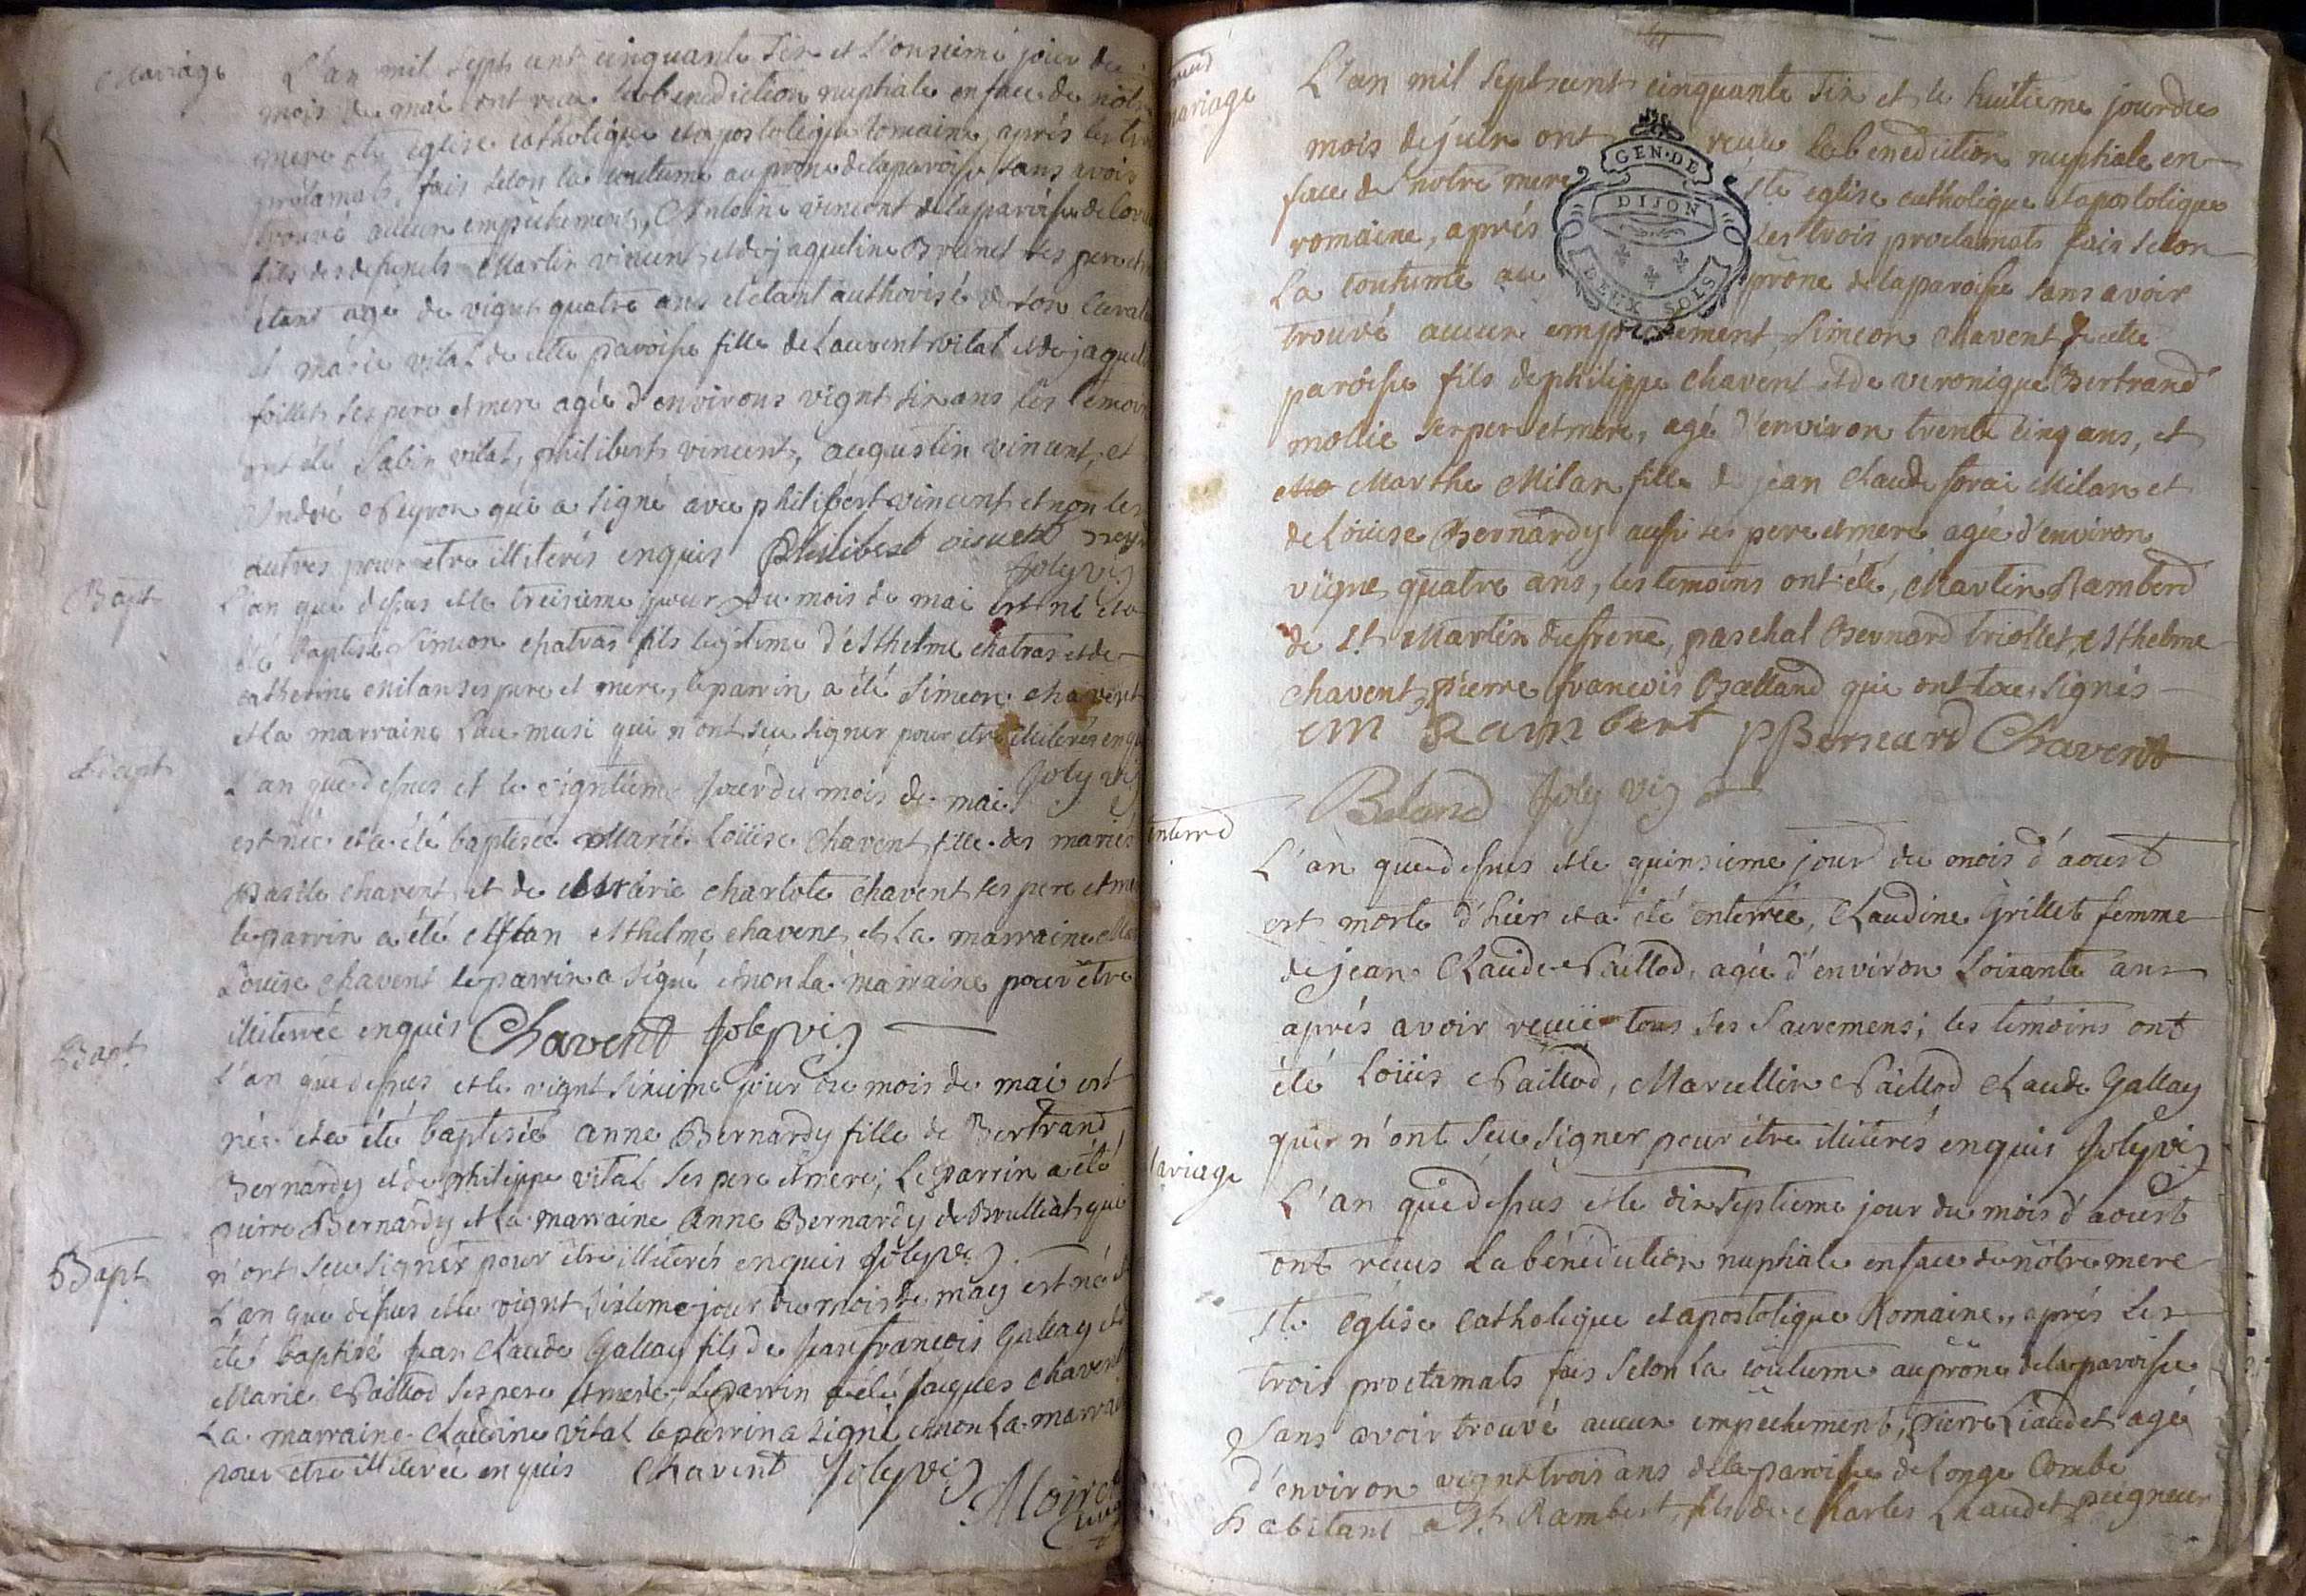 Mariage
L'an mil sept cent cinquante six et l'onzieme jour du
mois de mai ont reçu la benediction nuptiale en face de nôtre
mere ste eglise catholique et apostolique romaine, aprés les
proclamats, fais selon la coutume au prone de la paroisse sans avoir
trouvé aucun empêchement, Antoine vincent de la paroisse de
fils des defunts Martin vincent, et de jaqueline Brunet ses pere et
étant agé de vignt quatre ans et étant authorisé de son
et marie vital de cette paroisse fille de Laurent vital et de
ses pere et mere agée d'environs vignt six ans les
ont été Sabin vital, philibert vincent, augustin vincent, et
André Peyron qui a signé avec philibert vincent et non les
autres pour etre illiterés enquis Philibert vincent
Joly vic
Bapt
L'an que dessus et le treizieme jour du mois de mai est né et a
été baptisé Simeon chatras fils legitime d'Anthelme chatras et de
catherine Milan ses pere et mere, le parrin a été Simeon chavent
et la marraine qui n'ont seu signer pour etre illiterés
Joly vic
Bapt
L'an que dessus et le vigntieme jour du mois de mai
est née et a été baptisée Marie Loüise chavent fille des mariés
Basile chavent et de Marie charlote chavent ses pere et
le parrin a été Anthelme chavent et la marraine
Loüise chavent le parrin a signé et non la marraine pour être
illiterée enquis Chavent Joly vic
Bapt
L'an que dessus et le vignt sixieme jour du mois de mai est
née et a été baptisée anne Bernardy fille de Bertrand
Bernardy et de philippe vital ses pere et mere; Le parrin a été
pierre Bernardy et la marraine Anne Bernardy de Brulliat qui
n'ont seu signer pour être illiterés enquis Joly vic
Bapt
L'an que dessus et le vignt sixieme jour du mois de may est né
été baptisé jean Claude Gallay fils de jean francois Gallay et
Marie Paillod ses pere et mere, le parrin a été jaques chavent
La marraine Claudine vital le parrin a signé et non la
pour etre illiterée enquis Chavent Joly vic
mariage
L'an mil sept cent cinquante six et le huitieme jour du
mois de juin ont reçue la benediction nuptiale en
face de notre mere ste eglise catholique et apostolique
romaine, aprés les trois proclamats fais selon
La coutume au prône de la paroisse sans avoir
trouvé aucun empechement, Simeon chavent de cette
paroisse fils de philippe chavent et de veronique Bertrand
mollie ses pere et mere, agé d'environ trente cinq ans, et
Marthe Milan fille de jean Claude Milan et
de Loüise Bernardy aussi ses pere et mere agée d'environ
vignt quatre ans, les temoins ont été, Martin Ramberd
de St Martin dufrene, paschal Bernard triollet, Anthelme
chavent, pierre francois Balland qui ont tous signés
m Rambert P Bernard Chavent
Beland Joly vic
GEN. DE
DIJON
DEUX SOLS
enterrd
L'an que dessus et le quinsieme jour du mois d'aoust
est morte d'hier et a été enterrée, Claudine Grillet femme
de jean Claude Paillod, agée d'environ soixante ans
aprés avoir reçuë tous ses Sacremens; les témoins ont
été Loüis Paillod, Marcellin Paillod Claude Gallay
qui n'ont seu signer pour être illiterés enquis Joly vic
mariage
L'an que dessus et le dix septieme jour du mois d'aoust
ont reçus La bénédiction nuptiale en face de nôtre mere
ste Eglise Catholique et apostolique Romaine, aprés Les
trois proclamats fais selon La coûtume au prône de la paroisse
Sans avoir trouvé aucun empêchement, pierre Liaudet agé
d'environ vignt trois ans de la paroisse de Longe Combe
habitant a St Rambert, fils de Charles Liaudet peigneur